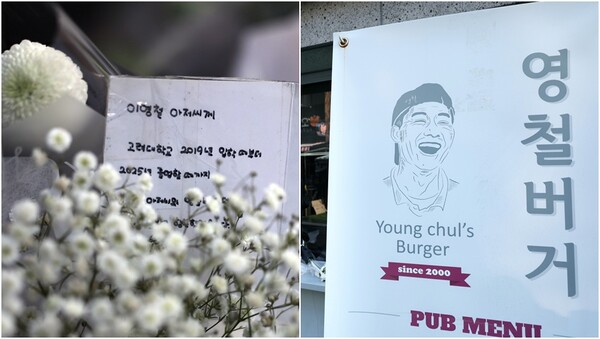 이영철 아저씨께
고려대학교 2019년 입학 때부터
2025년 졸업할 때까지
영철버거
Young chul's
Burger
since 2000
PUB MENU